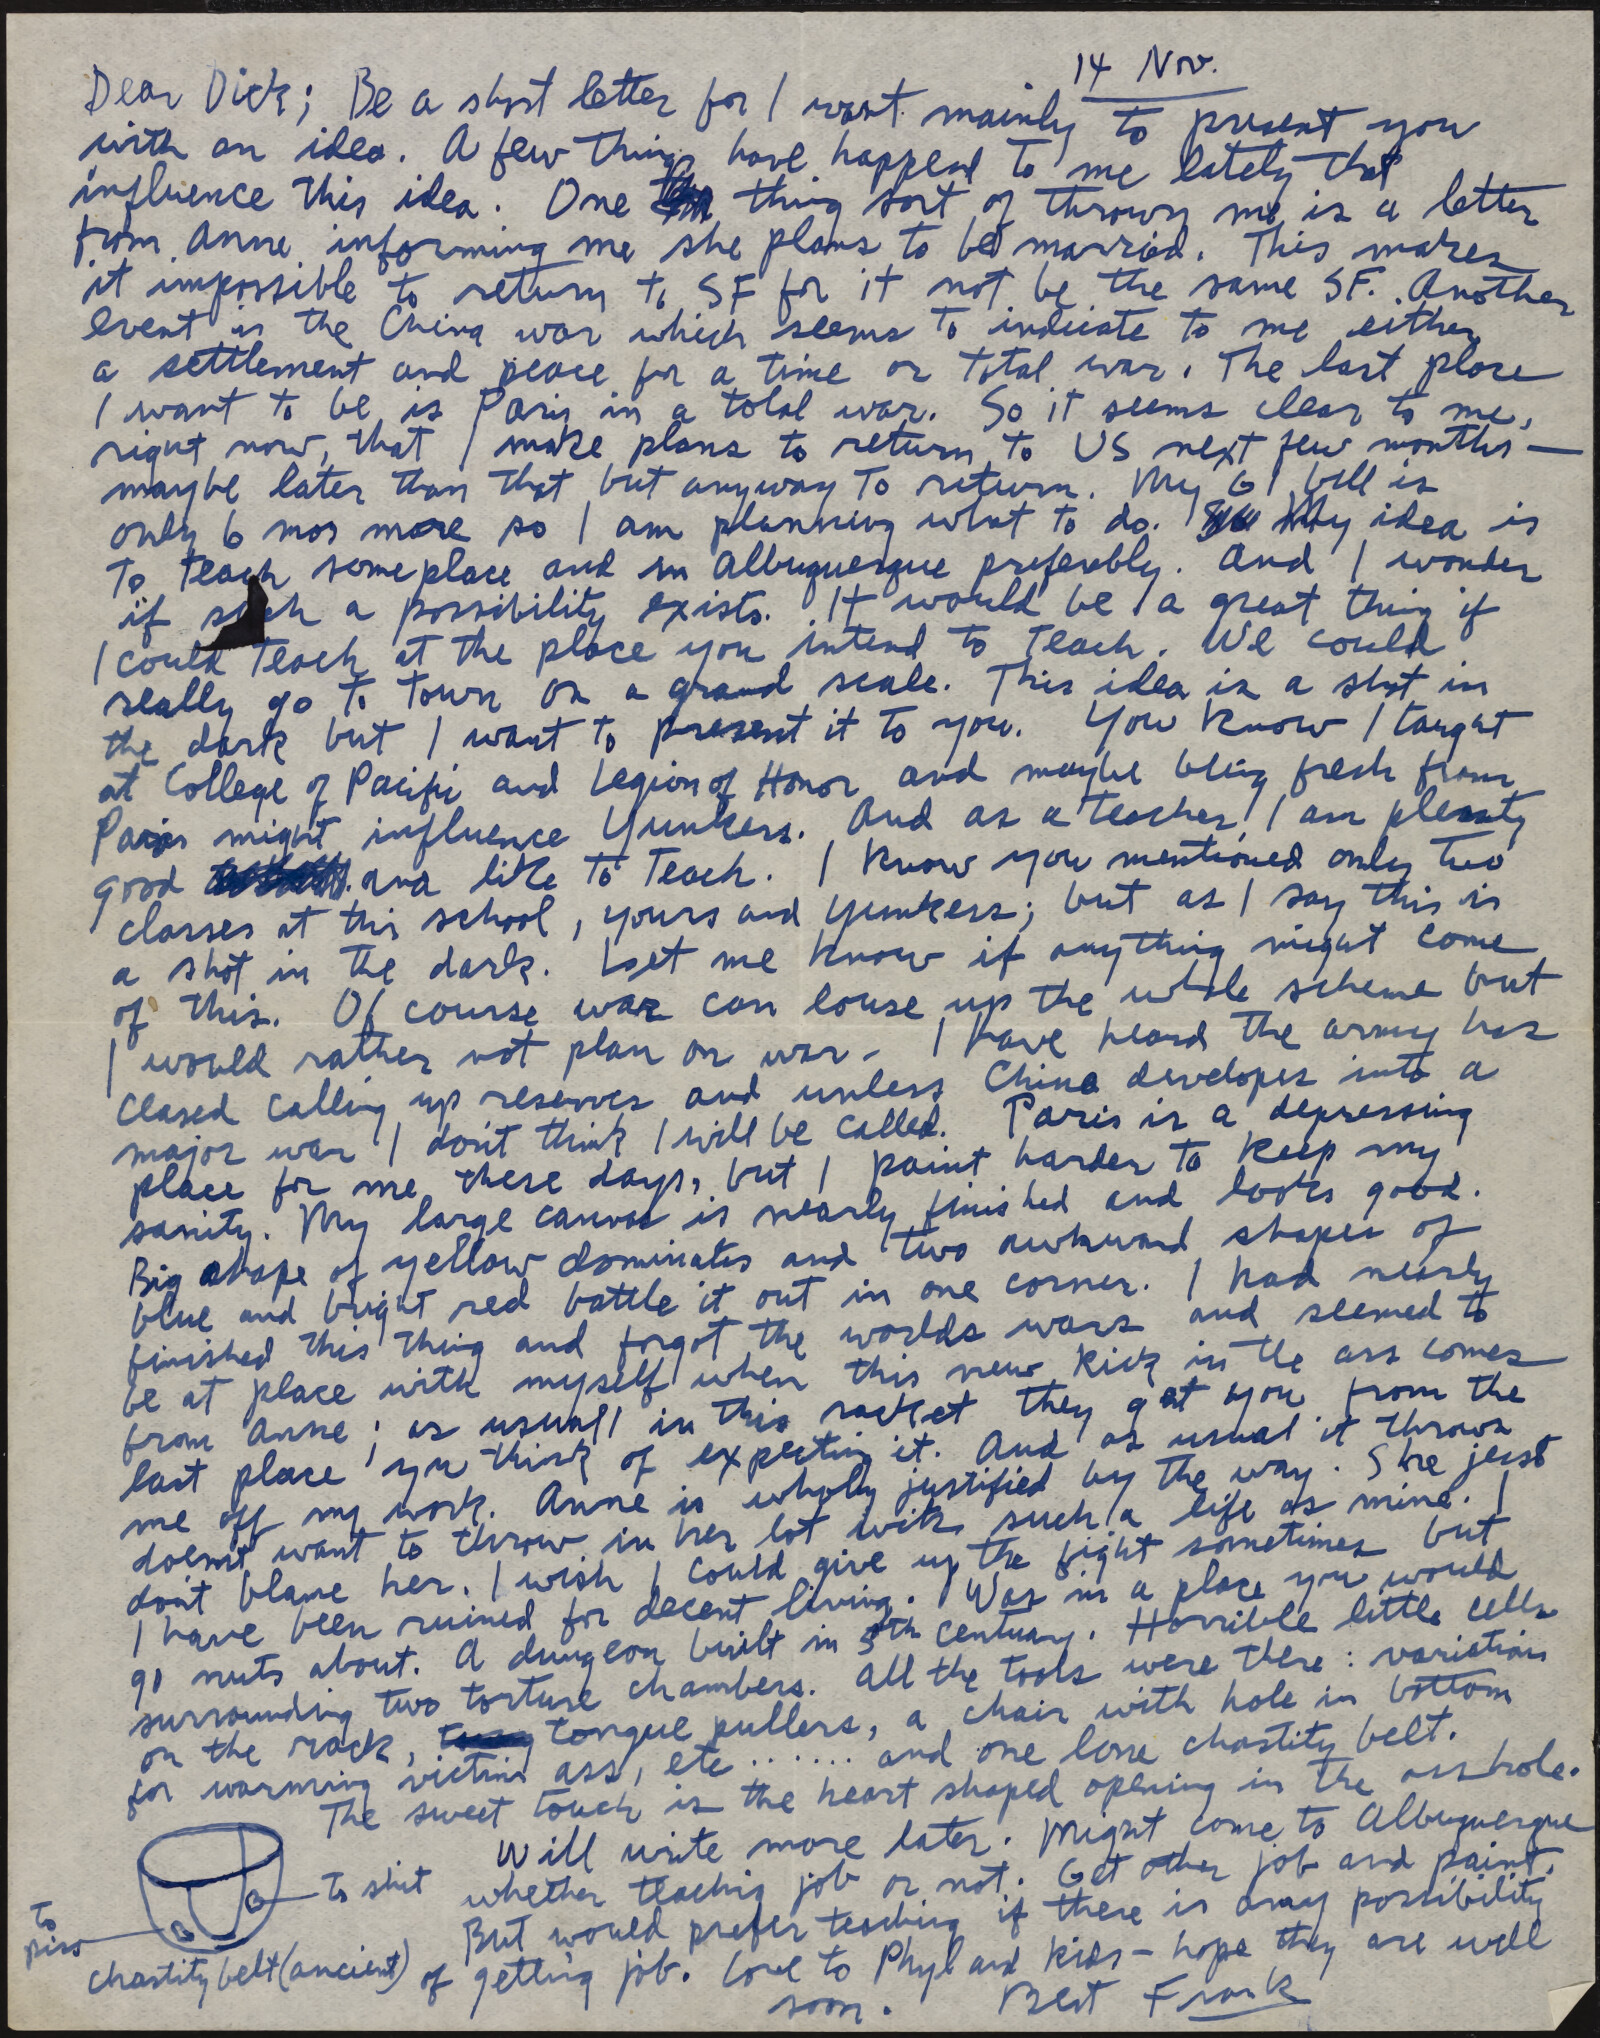 14 Nov.
Dear Dick; Be a short letter for I want mainly to present you
with an idea. A few things have happend to me lately that
influence this idea. One thing sort of throwy me is a letter
from Anne informing me she plans to be married. This makes
it impossible to return to SF for it not be the same SF. Another
event is the China war which seems to indicate to me either
a settlement and peace for a time or total war. The last place
I want to be is Paris in a total war. So it seems clear to me,
right now, that I make plans to return to US next few months —
maybe later than that but anyway to return. My GI bill is
only 6 mos more so I am planning what to do. My idea is
to teach some place and in Albuquerque preferably. And I wonder
if such a possibility exists. It would be a great thing if
I could teach at the place you intend to teach. We could
really go to town on a grand scale. This idea is a shot in
the dark but I want to present it to you. You know I taught
at College of Pacific and Legion of Honor and maybe being fresh from
Paris might influence Yunkers. And as a teacher I am plenty
good and like to teach. I know you mentioned only two
classes at this school, yours and Yunkers; but as I say this is
a shot in the dark. Let me know if anything might come
of this. Of course war can louse up the whole scheme but
I would rather not plan on war. I have heard the army has
ceased calling up reserves and unless China developes into a
major war I don't think I will be called. Paris is a depressing
place for me these days, but I paint harder to keep my
sanity. My large canvas is nearly finished and looks good.
Big shape of yellow dominates and two awkward shapes of
blue and bright red battle it out in one corner. I had nearly
finished this thing and forgot the worlds wars and seemed to
be at place with myself when this new kick in the ass comes
from Anne; as usual in this racket they get you from the
last place you think of expecting it. And as usual it throws
me off my work. Anne is wholly justified by the way. She jest
doesnt want to throw in her lot with such a life as mine. I
don't blame her. I wish I could give up the fight sometimes but
I have been ruined for decent living. Was in a place you would
go nuts about. A dungeon built in 5th century. Horrible little cells
surrounding two torture chambers. All the tools were there: variations
on the rack, tongue pullers, a chair with hole in bottom
for warming victims ass, etc ...... and one lone chastity belt.
The sweet touch is the heart shaped opening in the asshole.
Will write more later. Might come to Albuquerque
whether teaching job or not. Get other job and paint.
But would prefer teaching if there is any possibility
of getting job. Love to Phyl and kids — hope they are well
soon. Best Frank
to shit
to piss
chastity belt (ancient)